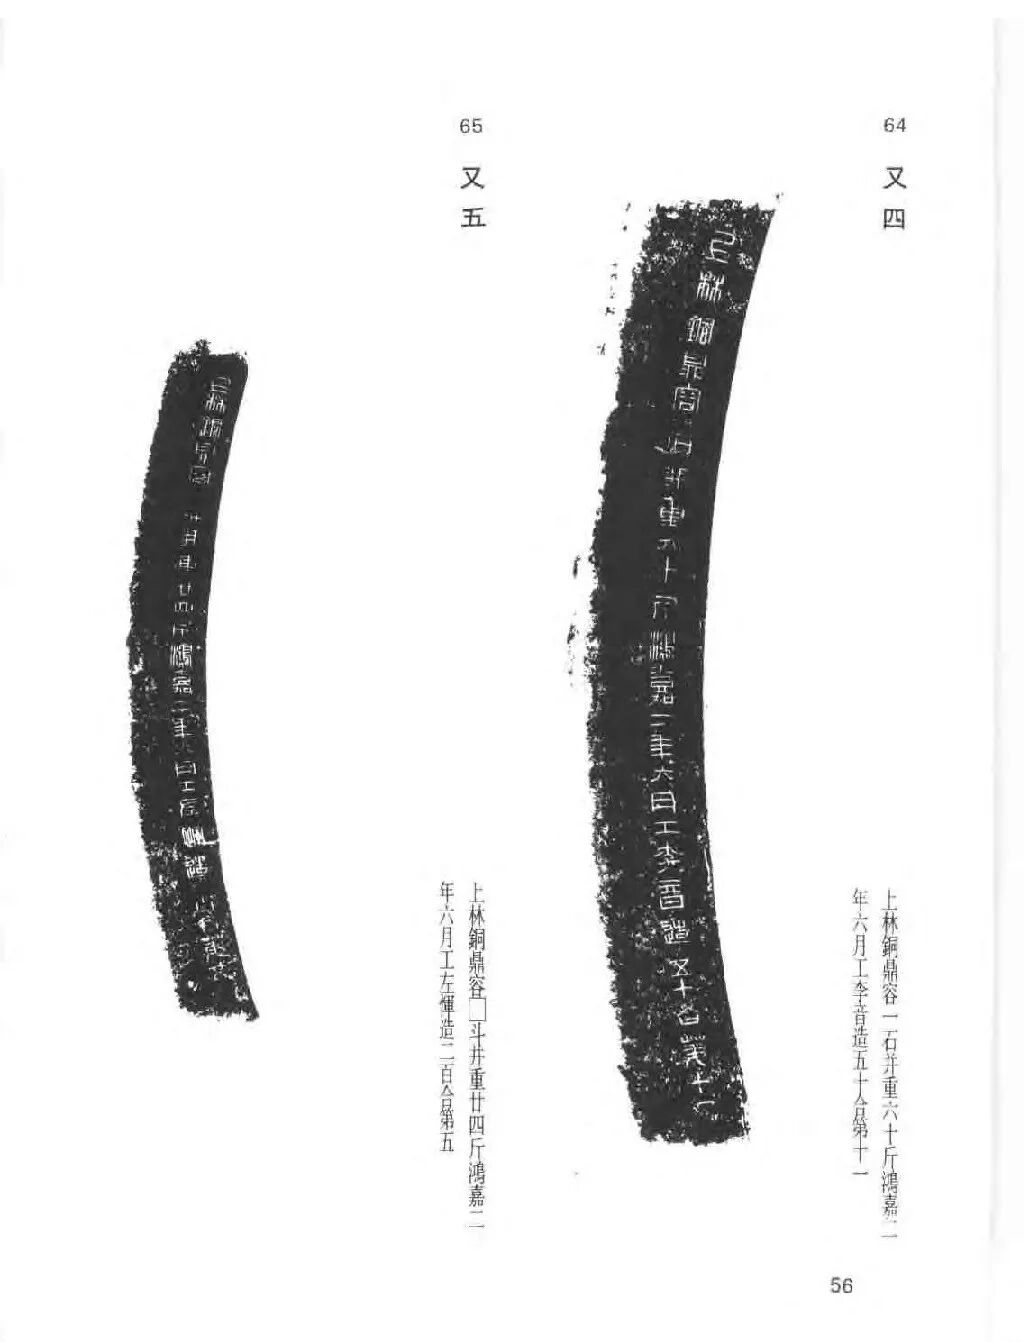 64
又四
上林銅鼎容一石并重六十斤鴻嘉二
年六月工李音造五十合第十一
65
又五
上林銅鼎容□斗并重廿四斤鴻嘉二
年六月工左惲造二百合第五
56